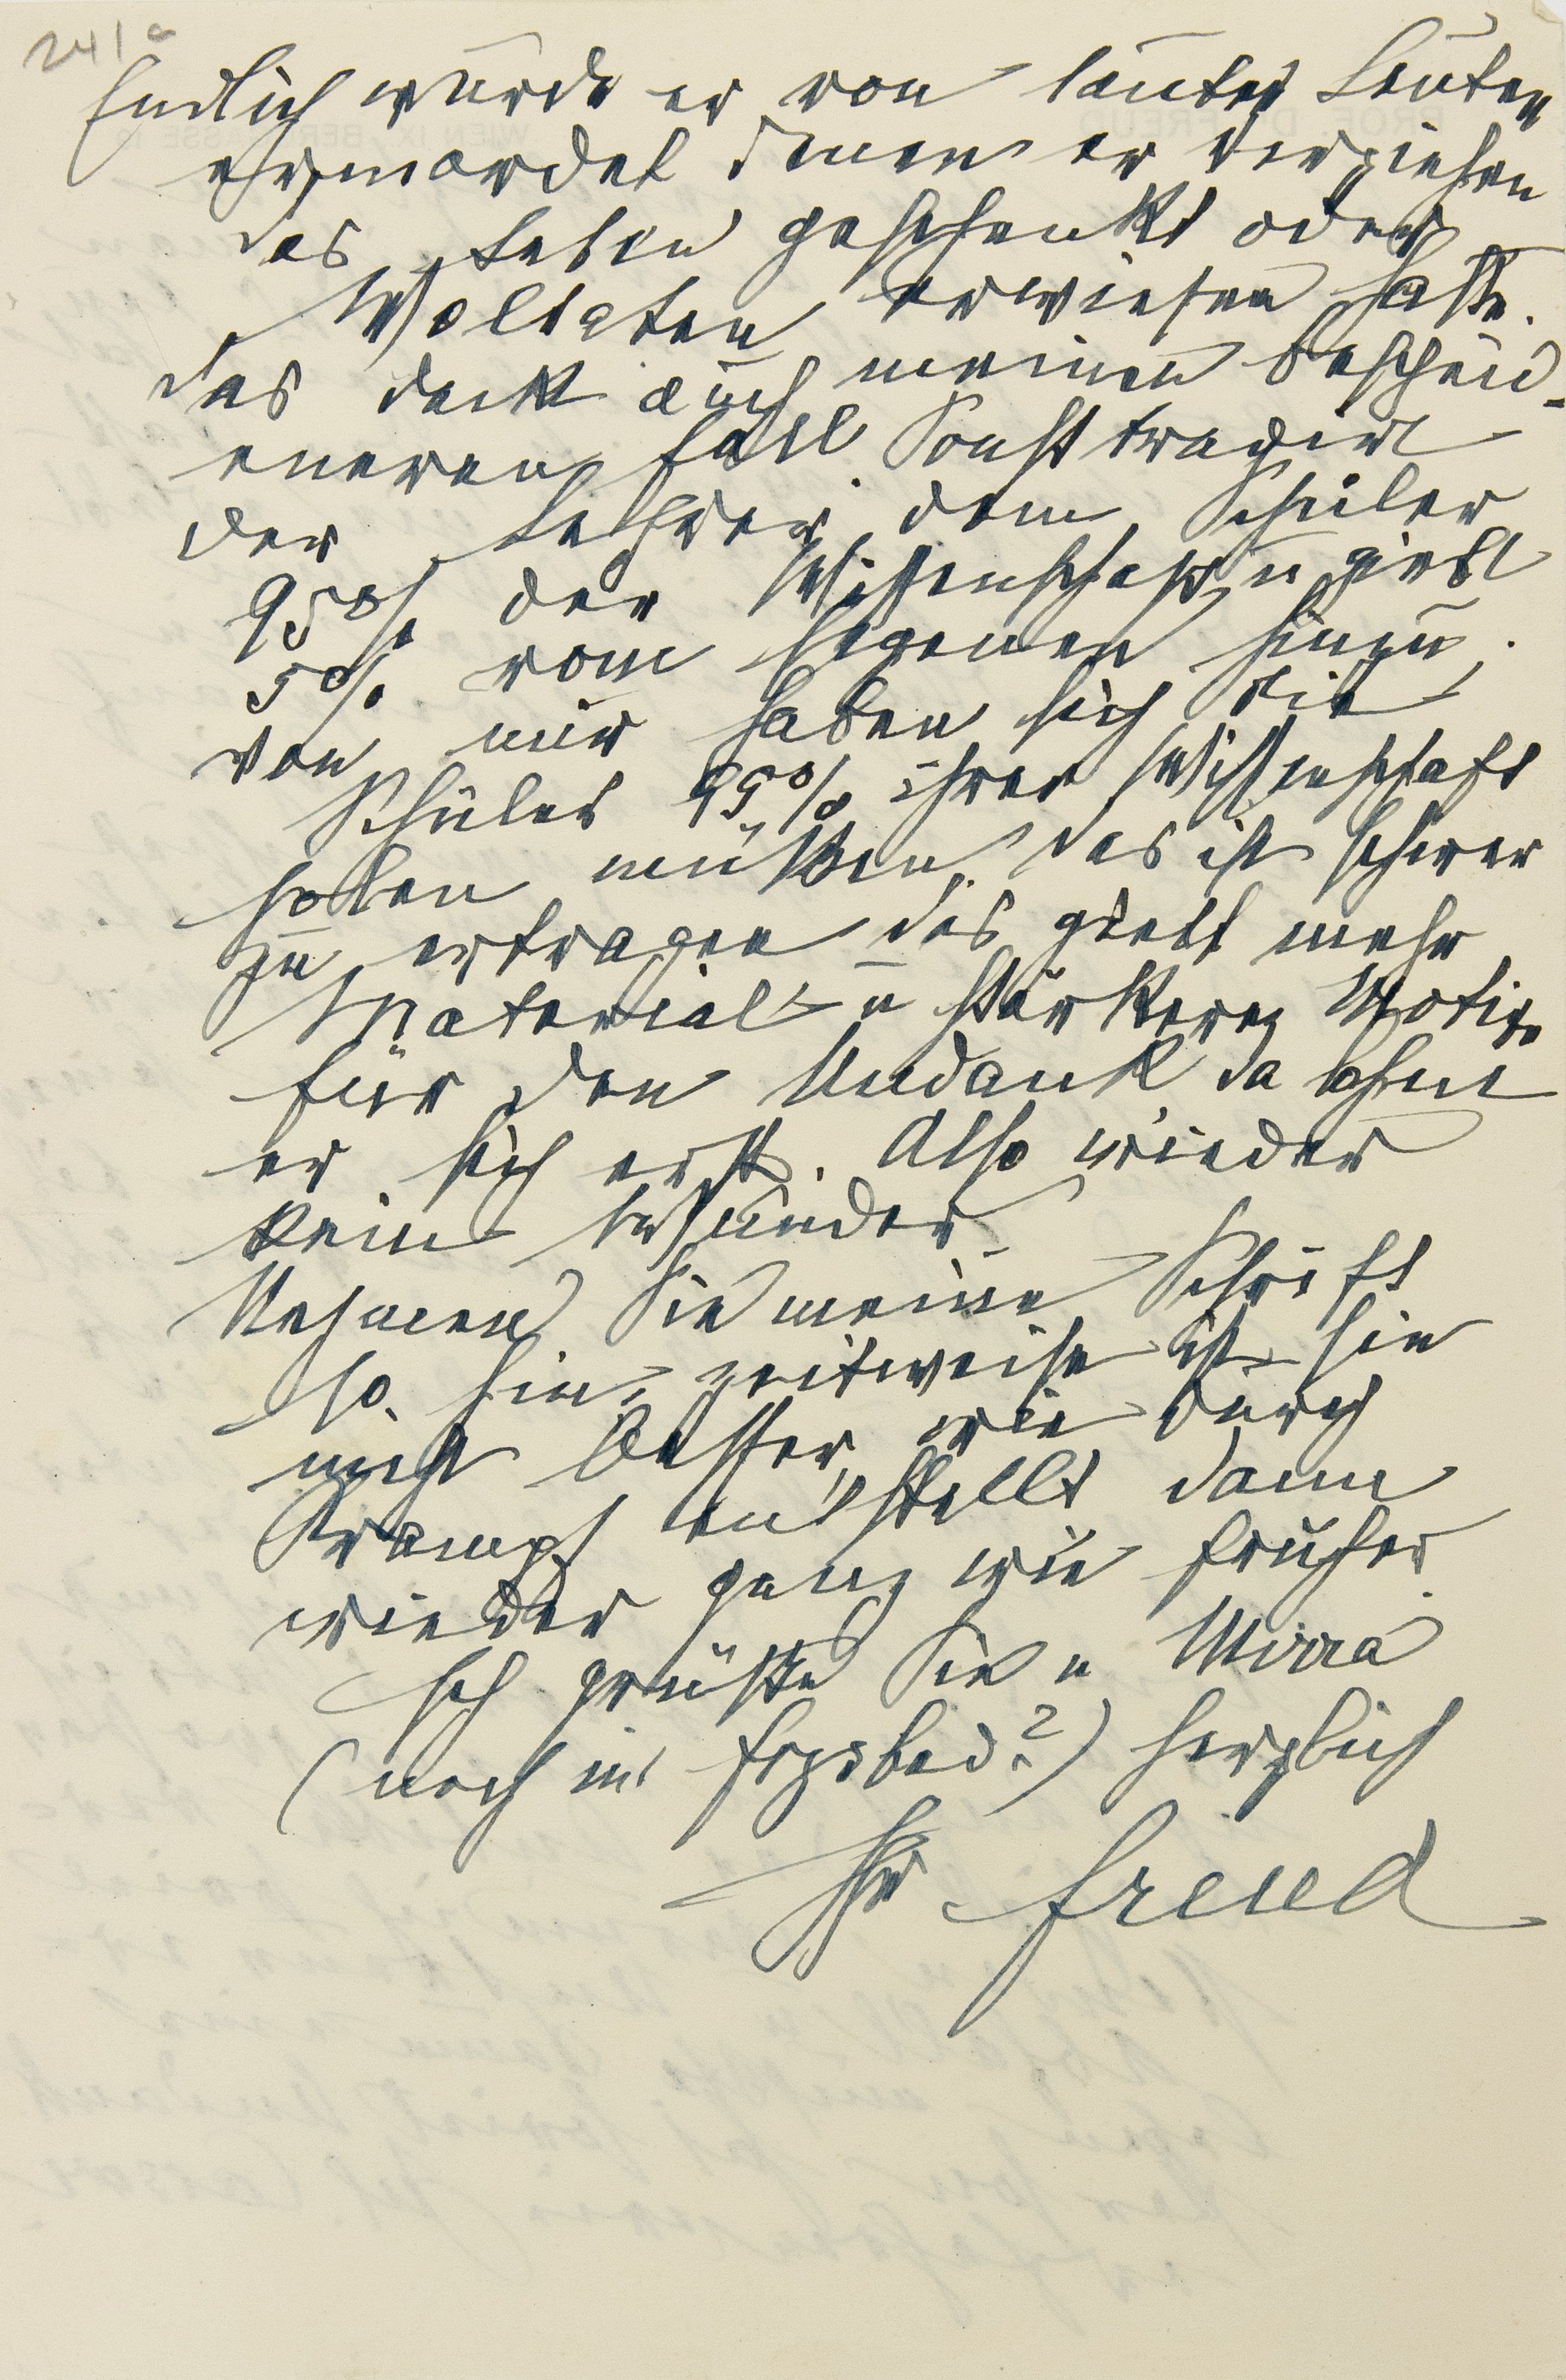 241a
Endlich wurde er von lauter Leuten
ermordet denen er verziehen
das Leben geschenkt oder
Woltaten erwiesen hatte.
Das deckt auch meinen bescheid-
eneren Fall. Sonst tragirt
der Lehrer dem Schüler
95% der Wissenschaft u giebt
5% vom Eigenen hinzu.
Von mir haben sich die
Schüler 99% ihrer Wissenschaft
holen müßen. Das ist schwer
zu ertragen das giebt mehr
Material u stärkere Motive
für den Undank da
er sich erst. Also wieder
kein Wunder
Nehmen Sie meine Schrift
so hin, zeitweise ist sie
nicht besser, wie durch
Krampf entstellt dann
wieder ganz wie früher.
Ich grüße Sie u Mirra
(noch in Frzsbad?) herzlich
Ihr Freud